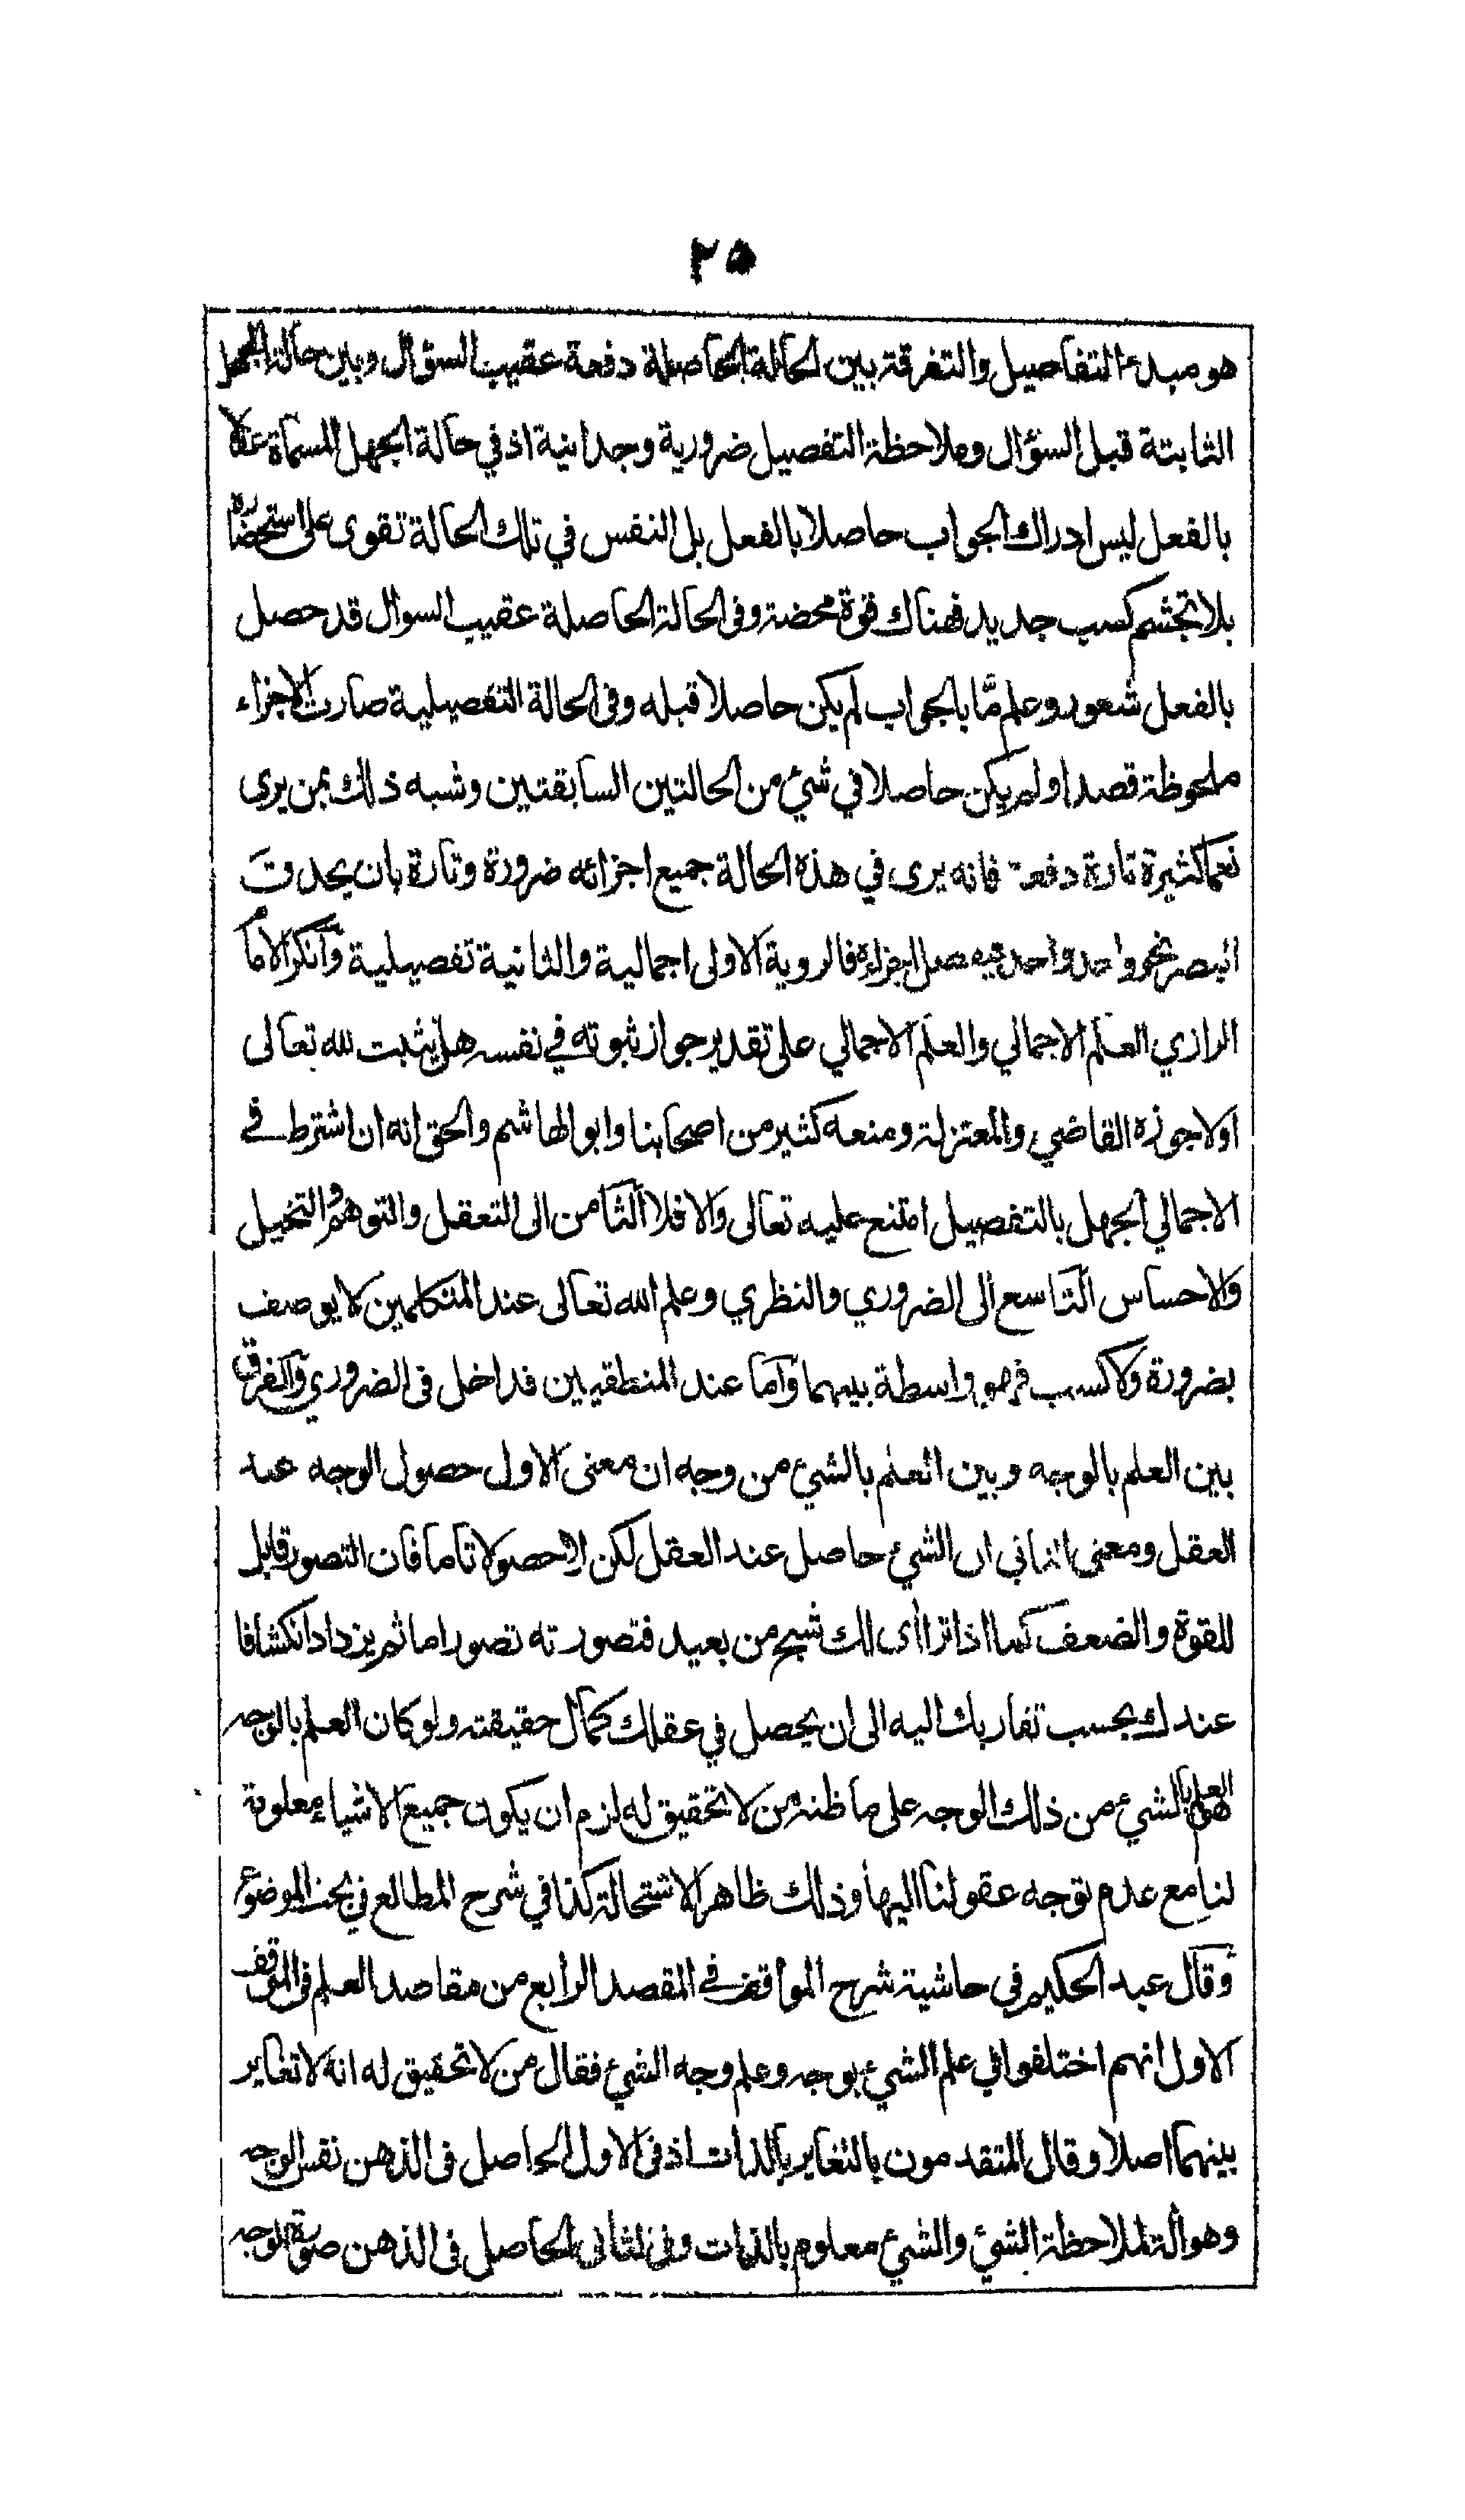 ٢٥
هو مبدء التفاصيل والتفرقة بين الحالة الحاصلة دفعة عقيب السؤال وبين حالة الجهل
الثابتة قبل السؤال وملاحظة التفصيل ضرورية وجدانية اذ في حالة الجهل المسماة عقلا
بالفعل ليس ادراك الجواب حاصلا بالفعل بل النفس في تلك الحالة تقوى على استحضاره
بلا تجشم كسب جديد فهناك قوة محضة وفى الحالة الحاصلة عقيب السوال قد حصل
بالفعل شعور وعلم مّا بالجواب لم يكن حاصلا قبله وفى الحالة التفصيلية صارت الاجزاء
ملحوظة قصدا ولم يكن حاصلا في شئ من الحالتين السابقتين وشبه ذلك بمن يرى
نعما كثيرة تارة دفعة فانه يرى في هذه الحالة جميع اجزائه ضرورة وتارة بان يحدق
البصر نحو واحد واحد فيفصل اجزاءه فالروية الاولى اجمالية والثانية تفصيلية وانكر الامام
الرازي العلم الاجمالي والعلم الاجمالي على تقدير جواز ثبوته في نفسه هل يثبت لله تعالى
اولا جوزه القاضي والمعتزلة ومنعه كثير من اصحابنا وابو الهاشم والحق انه ان اشترط في
الاجمالي الجهل بالتفصيل امتنع عليه تعالى والا فلا الثامن الى التعقل والتوهم والتخيل
والاحساس التاسع الى الضروري والنظري وعلم الله تعالى عند المتكلمين لا يوصف
بضرورة ولا كسب فهو واسطة بينهما واما عند المنطقيين فداخل فى الضروري والفرق
بين العلم بالوجه وبين العلم بالشئ من وجه ان معنى الاول حصول الوجه عند
العقل ومعنى الثاني ان الشئ حاصل عند العقل لكن لا حصولا تاما فان التصور قابل
للقوة والضعف كما اذا ترا أى لك شبح من بعيد فتصورته تصورا ما ثم يزداد انكشافا
عندك بحسب تقاربك اليه الى ان يحصل في عقلك كمال حقيقته ولو كان العلم بالوجه
هو العلم بالشئ من ذلك الوجه على ما ظنه من لا تحقيق له لزم ان يكون جميع الاشياء معلومة
لنا مع عدم توجه عقولنا اليها وذلك ظاهر الاستحالة كذا في شرح المطالع في بحث الموضوع
وقال عبد الحكيم في حاشية شرح المواقف في المقصد الرابع من مقاصد العلم فى الموقف
الاول انهم اختلفوا في علم الشئ بوجه وعلم وجه الشئ فقال من لا تحقيق له انه لا تغاير
بينهما اصلا وقال المتقدمون بالتغاير بالذات اذ فى الاول الحاصل فى الذهن نفس الوجه
وهو آلة لملاحظة الشئ والشئ معلوم بالذات وفى الثانى الحاصل فى الذهن صورة الوجه